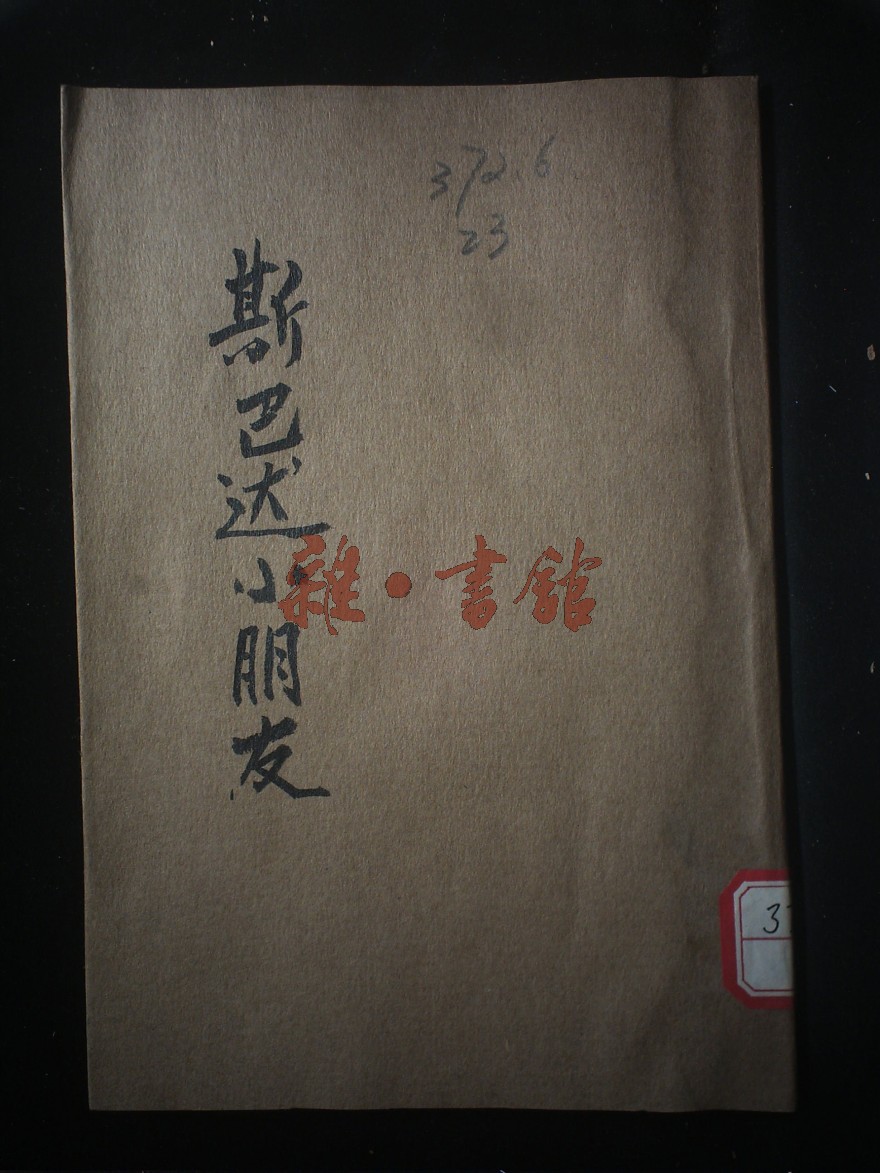 372.6
23
斯巴达小朋友
雜·書館
3